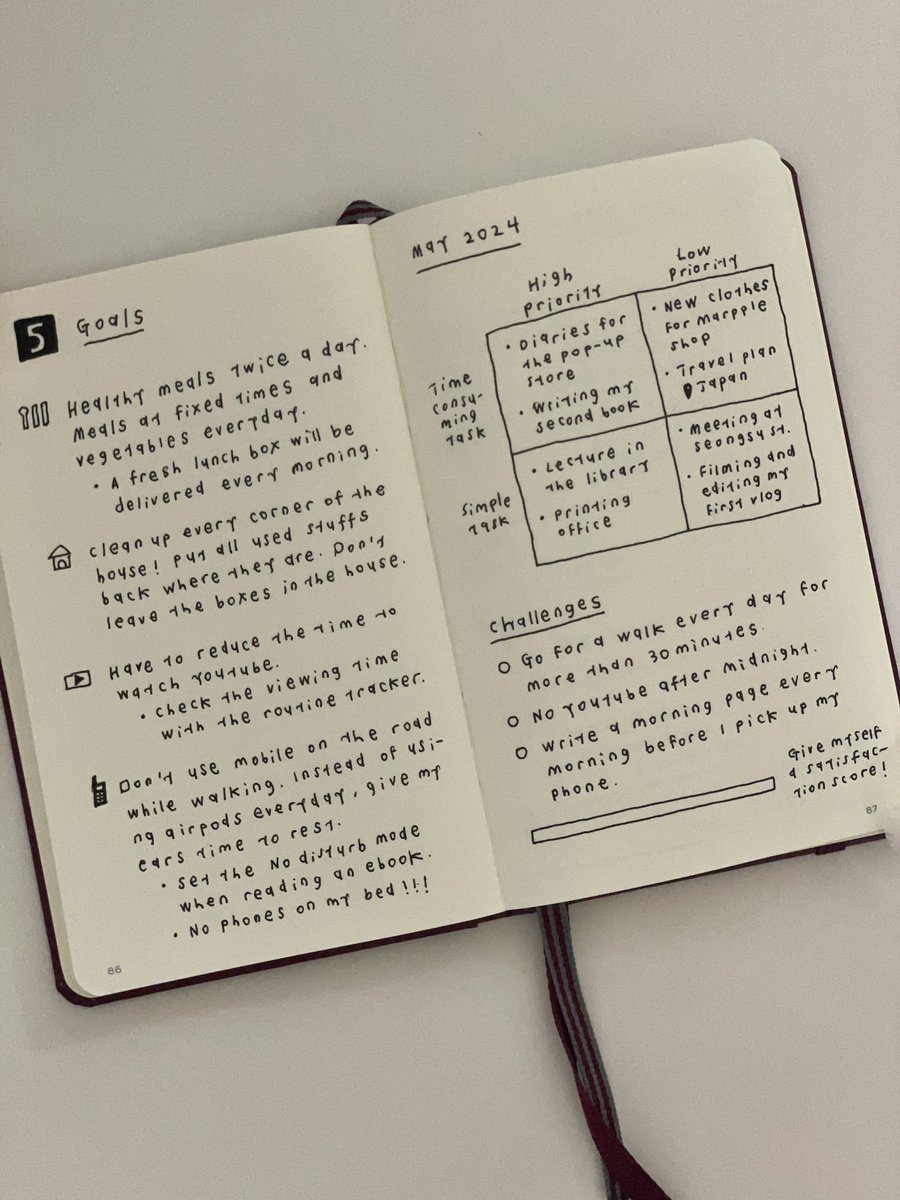 5 Goals
Healthy meals twice a day.
Meals at fixed times and
vegetables everyday.
• A fresh lunch box will be
delivered every morning.
Clean up every corner of the
house! Put all used stuffs
back where they are. Don't
leave the boxes in the house.
Have to reduce the time to
watch youtube.
• Check the viewing time
with the routine tracker.
Don't use mobile on the road
while walking. Instead of usi-
ng airpods everyday, give my
ears time to rest.
• Set the No disturb mode
when reading an ebook.
• No phones on my bed!!!
86
May 2024
High
priority
Low
priority
Time
consu-
ming
task
• Diaries for
the pop-up
store
• Writing my
second book
• New clothes
for marpple
shop
• Travel plan
Japan
Simple
task
• Lecture in
the library
• Printing
office
• Meeting at
seongsu st.
• Filming and
editing my
first vlog
Challenges
○ Go for a walk every day for
more than 30 minutes.
○ No youtube after midnight.
○ Write a morning page every
morning before I pick up my
phone.
Give myself
a satisfac-
tion score!
87